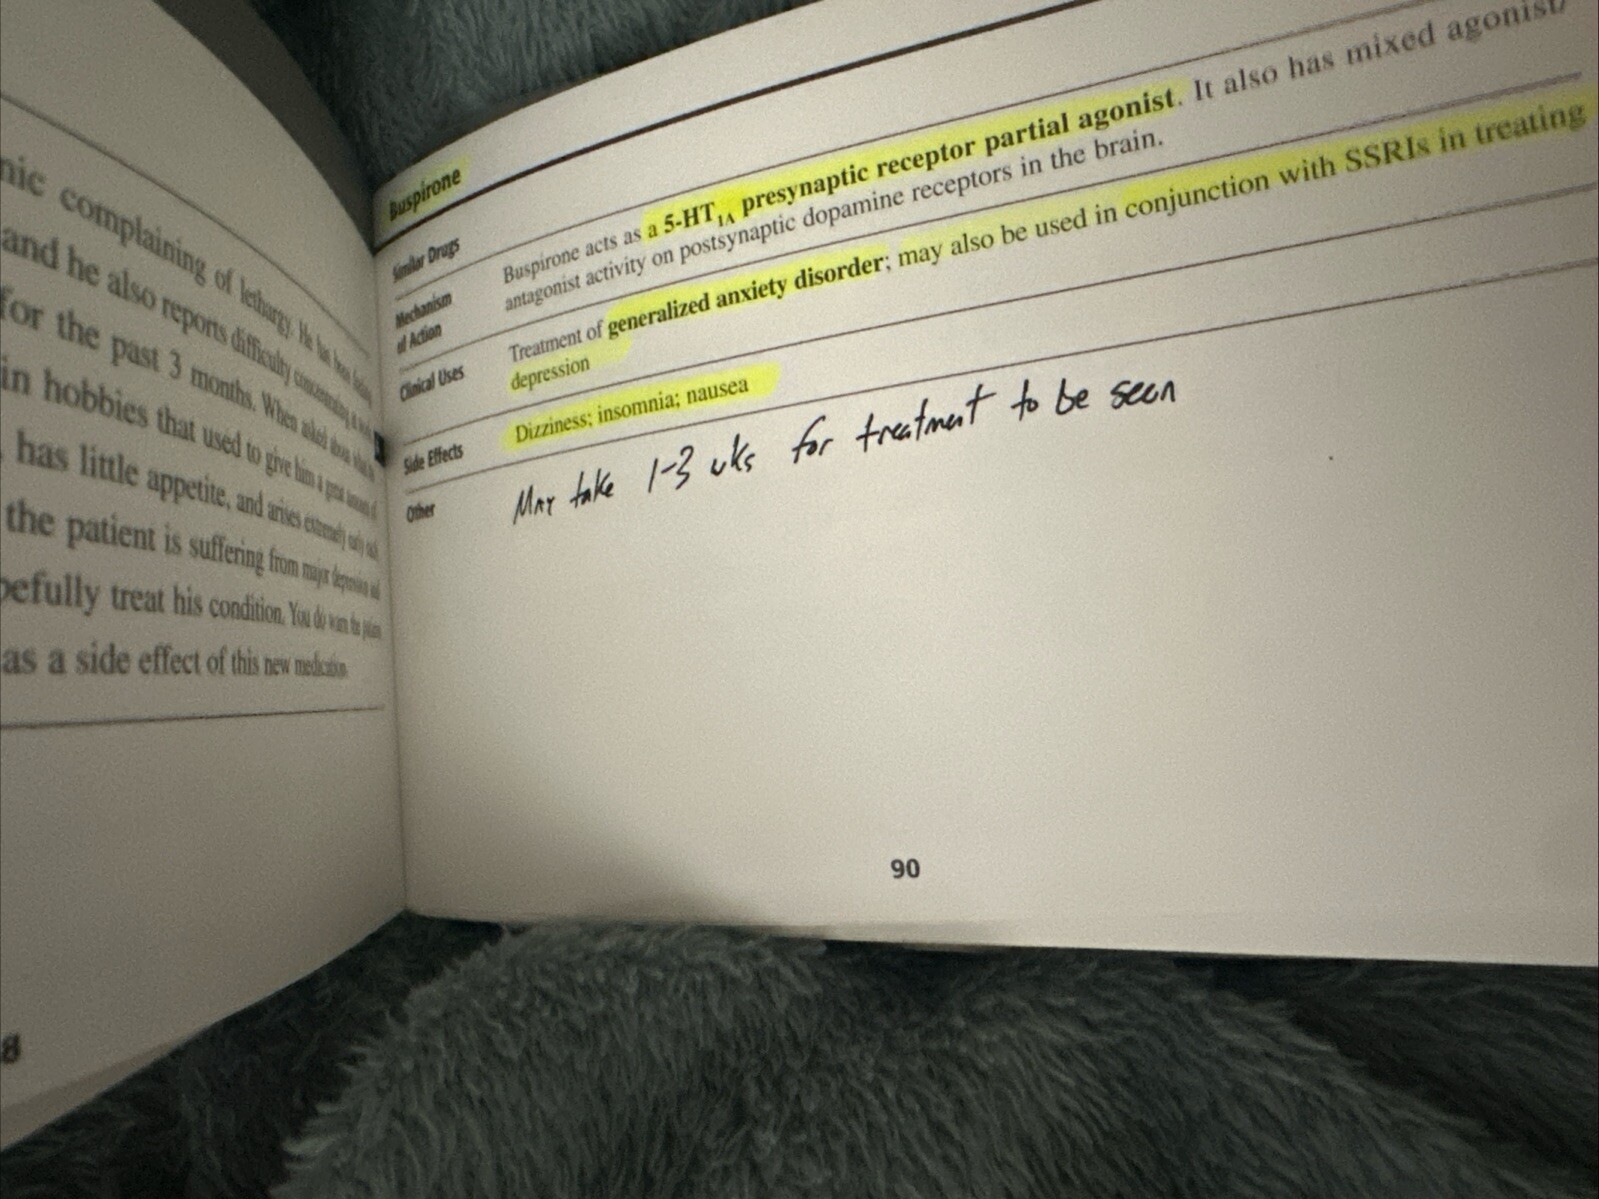 nic complaining of lethargy. He has been feeling
and he also reports difficulty concentrating at work
for the past 3 months. When asked about what he
in hobbies that used to give him a great amount of
has little appetite, and arises extremely early each
the patient is suffering from major depression and
pefully treat his condition. You do warn the patient
as a side effect of this new medication.
Buspirone
Similar Drugs
Mechanism of Action
Buspirone acts as a 5-HT1A presynaptic receptor partial agonist. It also has mixed agonist/
antagonist activity on postsynaptic dopamine receptors in the brain.
Clinical Uses
Treatment of generalized anxiety disorder; may also be used in conjunction with SSRIs in treating
depression
Side Effects
Dizziness; insomnia; nausea
Other
May take 1-3 wks for treatment to be seen
90